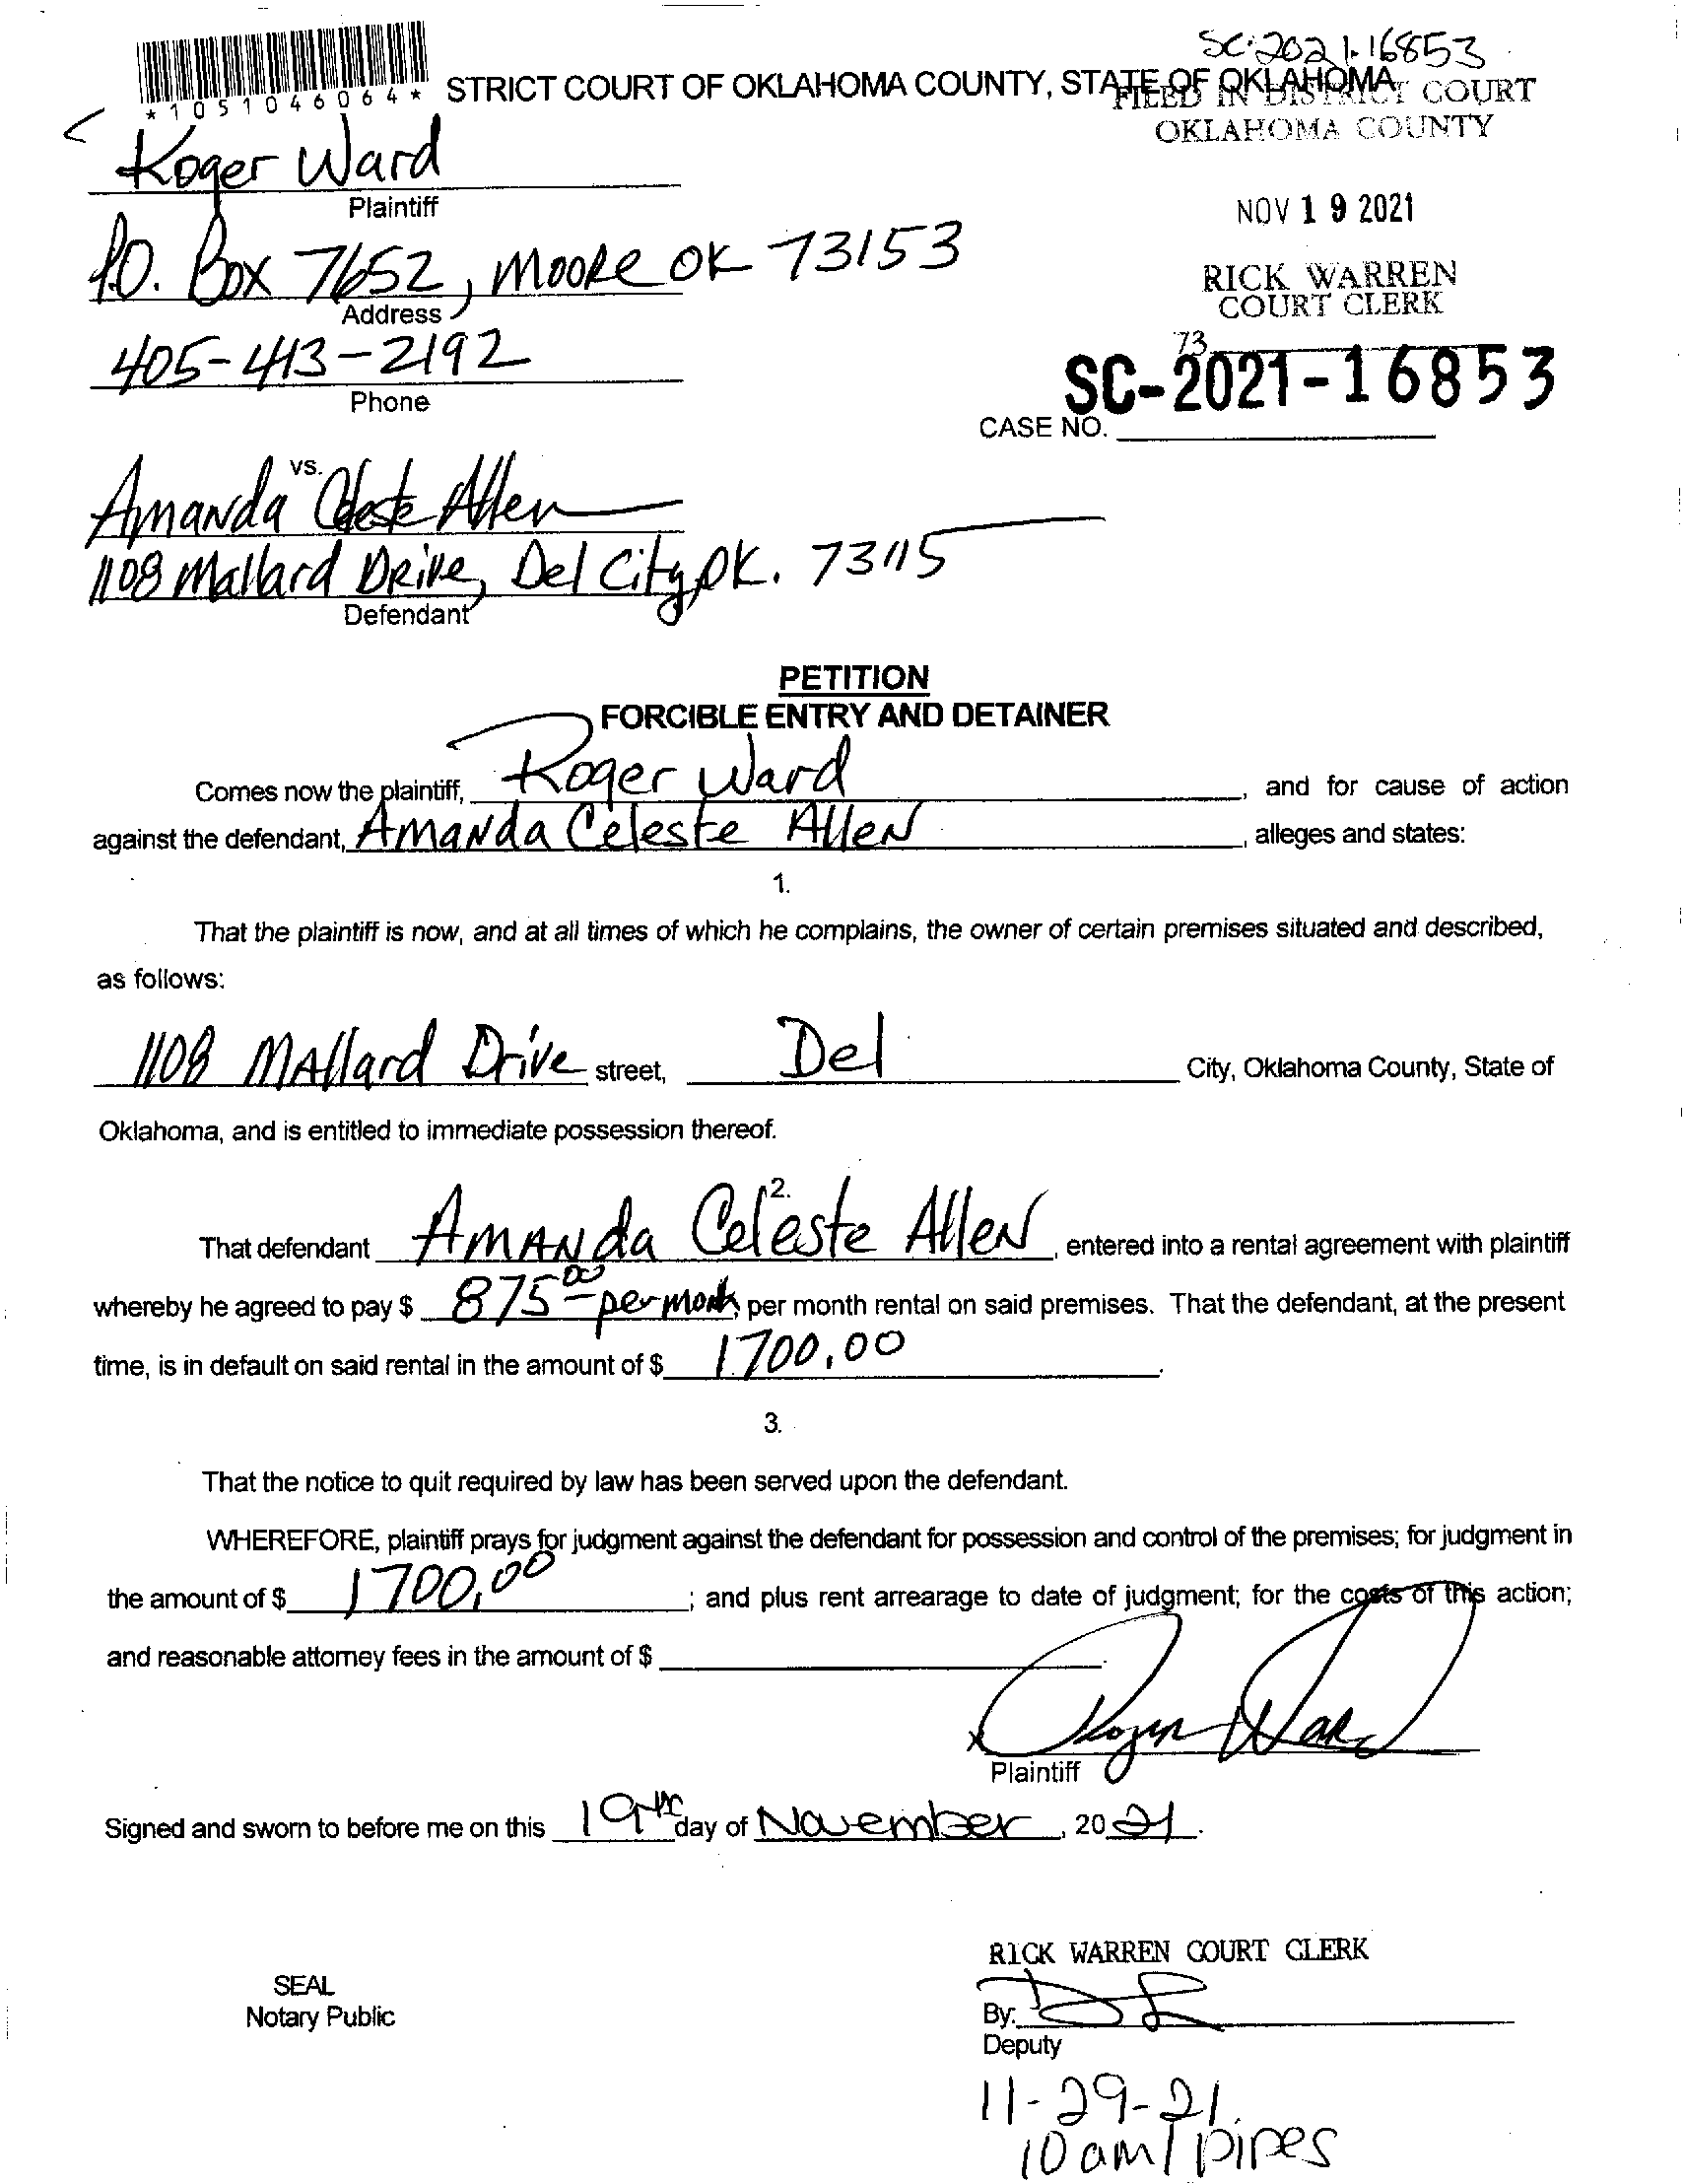 SC-2021-16853
*1051046064* STRICT COURT OF OKLAHOMA COUNTY, STATE OF OKLAHOMA
FILED IN DISTRICT COURT
OKLAHOMA COUNTY
Roger Ward
Plaintiff
NOV 19 2021
P.O. Box 7652, Moore OK 73153
Address
RICK WARREN
COURT CLERK
405-413-2192
Phone
73
SC-2021-16853
CASE NO.
vs.
Amanda Celeste Allen
1108 Mallard Drive, Del City, OK. 73115
Defendant
PETITION
FORCIBLE ENTRY AND DETAINER
Comes now the plaintiff, Roger Ward, and for cause of action
against the defendant, Amanda Celeste Allen, alleges and states:
1.
That the plaintiff is now, and at all times of which he complains, the owner of certain premises situated and described,
as follows:
1108 Mallard Drive street, Del City, Oklahoma County, State of
Oklahoma, and is entitled to immediate possession thereof.
2.
That defendant Amanda Celeste Allen, entered into a rental agreement with plaintiff
whereby he agreed to pay $ 875 00 - per month, per month rental on said premises. That the defendant, at the present
time, is in default on said rental in the amount of $ 1700.00.
3.
That the notice to quit required by law has been served upon the defendant.
WHEREFORE, plaintiff prays for judgment against the defendant for possession and control of the premises; for judgment in
the amount of $ 1700.00; and plus rent arrearage to date of judgment; for the costs of this action;
and reasonable attorney fees in the amount of $
x Roger Ward
Plaintiff
Signed and sworn to before me on this 19th day of November, 2021.
RICK WARREN COURT CLERK
SEAL
Notary Public
By:
Deputy
11-29-21
10am / pipes